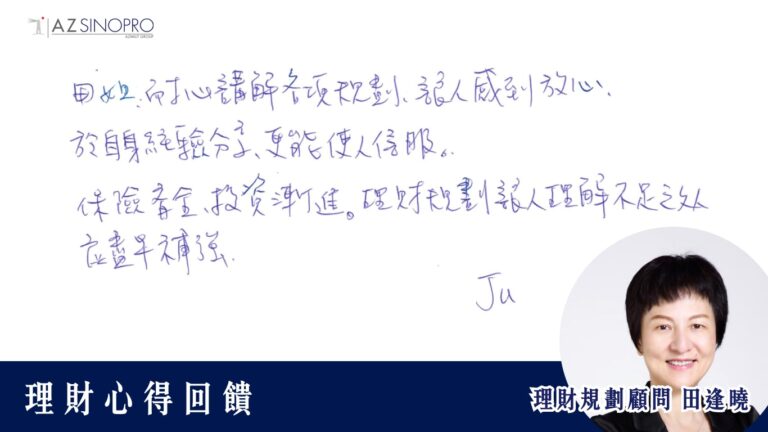 AZ SINOPRO
AZIMUT GROUP
田姐, 耐心講解各項規劃、讓人感到放心.
於自身經驗分享、更能使人信服。
保險奪金、投資漸進。理財規劃讓人理解不足之處
應盡早補強.
Ju
理財心得回饋
理財規劃顧問 田逢曉